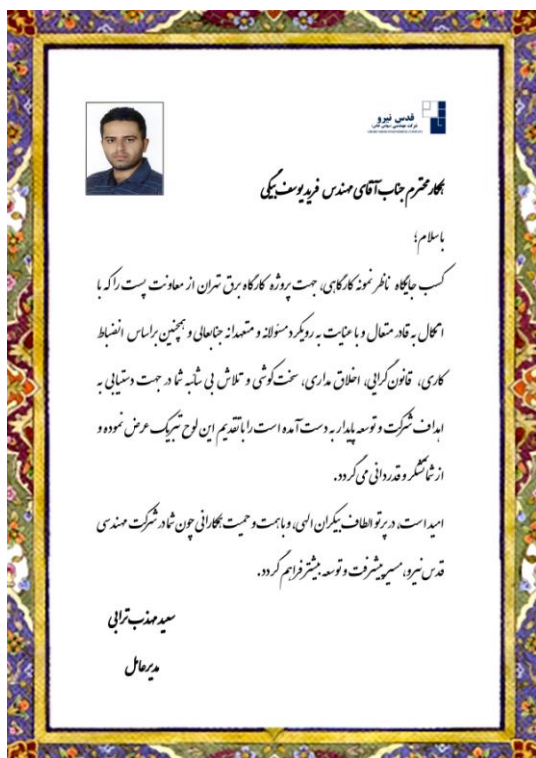 قدس نیرو
همکار محترم جناب آقای مهندس فرید یوسف بیگی
باسلام؛
کسب جایگاه ناظر نمونه کارگاهی، جهت پروژه کارگاه برق تهران از معاونت پست را که با
اتکال به قادر متعال و با عنایت به رویکرد مسئولانه و متعهدانه جنابعالی و همچنین براساس انضباط
کاری، قانون گرایی، اخلاق مداری، سخت کوشی و تلاش بی شائبه شما در جهت دستیابی به
اهداف شرکت و توسعه پایدار به دست آمده است را با تقدیم این لوح تبریک عرض نموده و
از شما تشکر و قدردانی می گردد.
امید است، در پرتو الطاف بیکران الهی، و با همت و حمیت همکارانی چون شما در شرکت مهندسی
قدس نیرو، مسیر پیشرفت و توسعه بیشتر فراهم گردد.
سعید مهذب ترابی
مدیرعامل